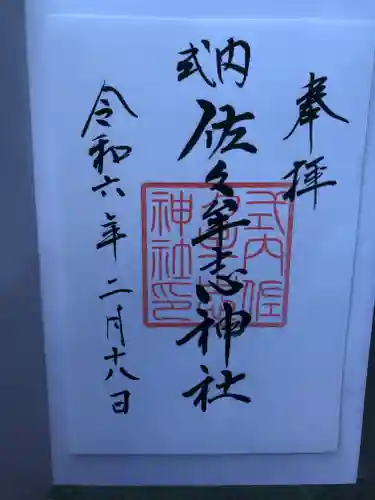 奉拝
式内
佐々牟志神社
令和六年二月十八日
式内佐
々牟志
神社印